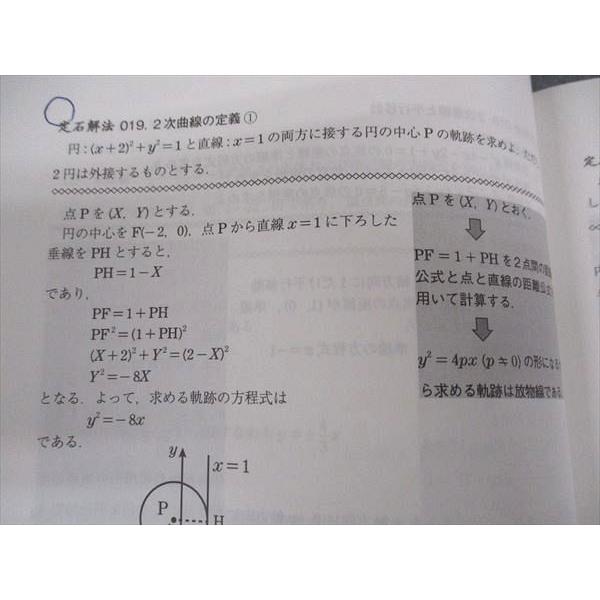 定石解法 019. 2次曲線の定義①
円：(x+2)²+y²=1と直線：x=1の両方に接する円の中心Pの軌跡を求めよ．ただ
2円は外接するものとする．
点Pを(X, Y)とする．
円の中心をF(−2, 0)，点Pから直線x=1に下ろした
垂線をPHとすると，
PH=1−X
であり，
PF=1+PH
PF²=(1+PH)²
(X+2)²+Y²=(2−X)²
Y²=−8X
となる．よって，求める軌跡の方程式は
y²=−8x
である．
y
x=1
P
H
点Pを(X, Y)とおく．
PF=1+PHを2点間の
公式と点と直線の距離公式
用いて計算する．
y²=4px (p≠0)の形になる
ら求める軌跡は放物線である